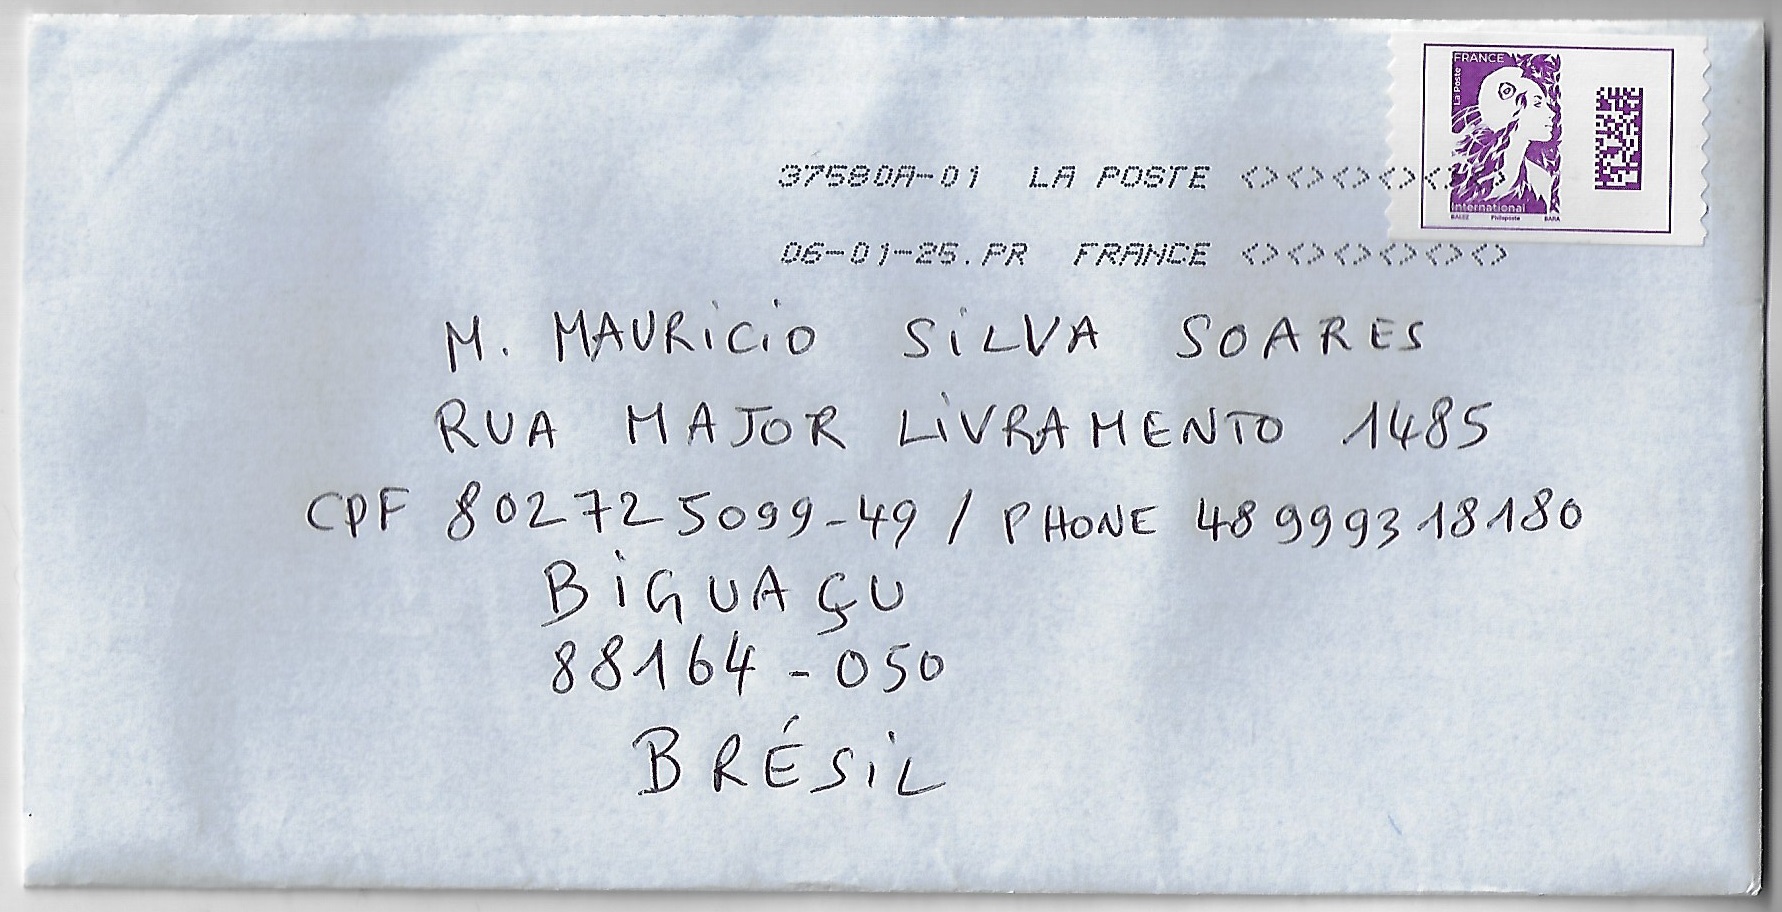 FRANCE
La Poste
International
BALEZ Philaposte BARA
37580A-01 LA POSTE <><><><><><>
06-01-25.PR FRANCE <><><><><><>
M. MAURICIO SILVA SOARES
RUA MAJOR LIVRAMENTO 1485
CPF 802725099-49 / PHONE 48 999318180
BIGUAÇU
88164-050
BRÉSIL